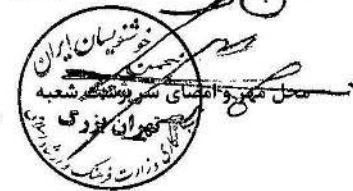 انجمن خوشنویسان ایران
محل مهر و امضای سرپرست شعبه
تهران بزرگ
وزارت فرهنگ و ارشاد اسلامی